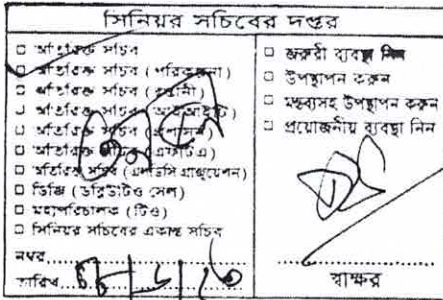 সিনিয়র সচিবের দপ্তর
□ অতিরিক্ত সচিব
□ অতিরিক্ত সচিব (পরিকল্পনা)
□ অতিরিক্ত সচিব (রপ্তানী)
□ অতিরিক্ত সচিব (আইআইটি)
□ অতিরিক্ত সচিব (প্রশাসন)
□ অতিরিক্ত সচিব (এফটিএ)
□ অতিরিক্ত সচিব (এলডিসি গ্রাজুয়েশন)
□ ডিজি (ডব্লিউটিও সেল)
□ মহাপরিচালক (টিও)
□ সিনিয়র সচিবের একান্ত সচিব
নম্বর
তারিখ
□ জরুরী ব্যবস্থা নিন
□ উপস্থাপন করুন
□ মন্তব্যসহ উপস্থাপন করুন
□ প্রয়োজনীয় ব্যবস্থা নিন
স্বাক্ষর